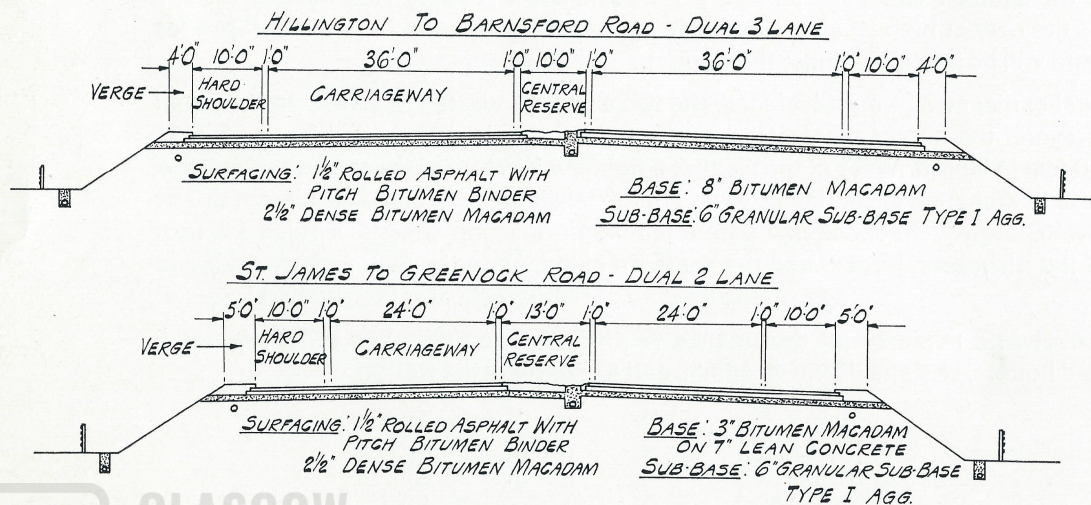 HILLINGTON TO BARNSFORD ROAD - DUAL 3 LANE
4'0" 10'0" 1'0" 36'0" 1'0" 10'0" 1'0" 36'0" 1'0" 10'0" 4'0"
VERGE
HARD
SHOULDER
CARRIAGEWAY
CENTRAL
RESERVE
SURFACING: 1½" ROLLED ASPHALT WITH
PITCH BITUMEN BINDER
2½" DENSE BITUMEN MACADAM
BASE: 8" BITUMEN MACADAM
SUB-BASE: 6" GRANULAR SUB-BASE TYPE I AGG.
ST. JAMES TO GREENOCK ROAD - DUAL 2 LANE
5'0" 10'0" 1'0" 24'0" 1'0" 13'0" 1'0" 24'0" 1'0" 10'0" 5'0"
VERGE
HARD
SHOULDER
CARRIAGEWAY
CENTRAL
RESERVE
SURFACING: 1½" ROLLED ASPHALT WITH
PITCH BITUMEN BINDER
2½" DENSE BITUMEN MACADAM
BASE: 3" BITUMEN MACADAM
ON 7" LEAN CONCRETE
SUB-BASE: 6" GRANULAR SUB-BASE
TYPE I AGG.
GLASGOW